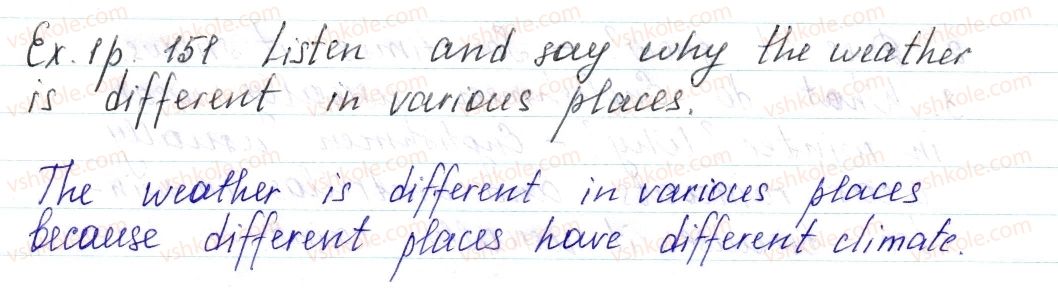 Ex. 1 p. 151 Listen and say why the weather
is different in various places.
The weather is different in various places
because different places have different climate.